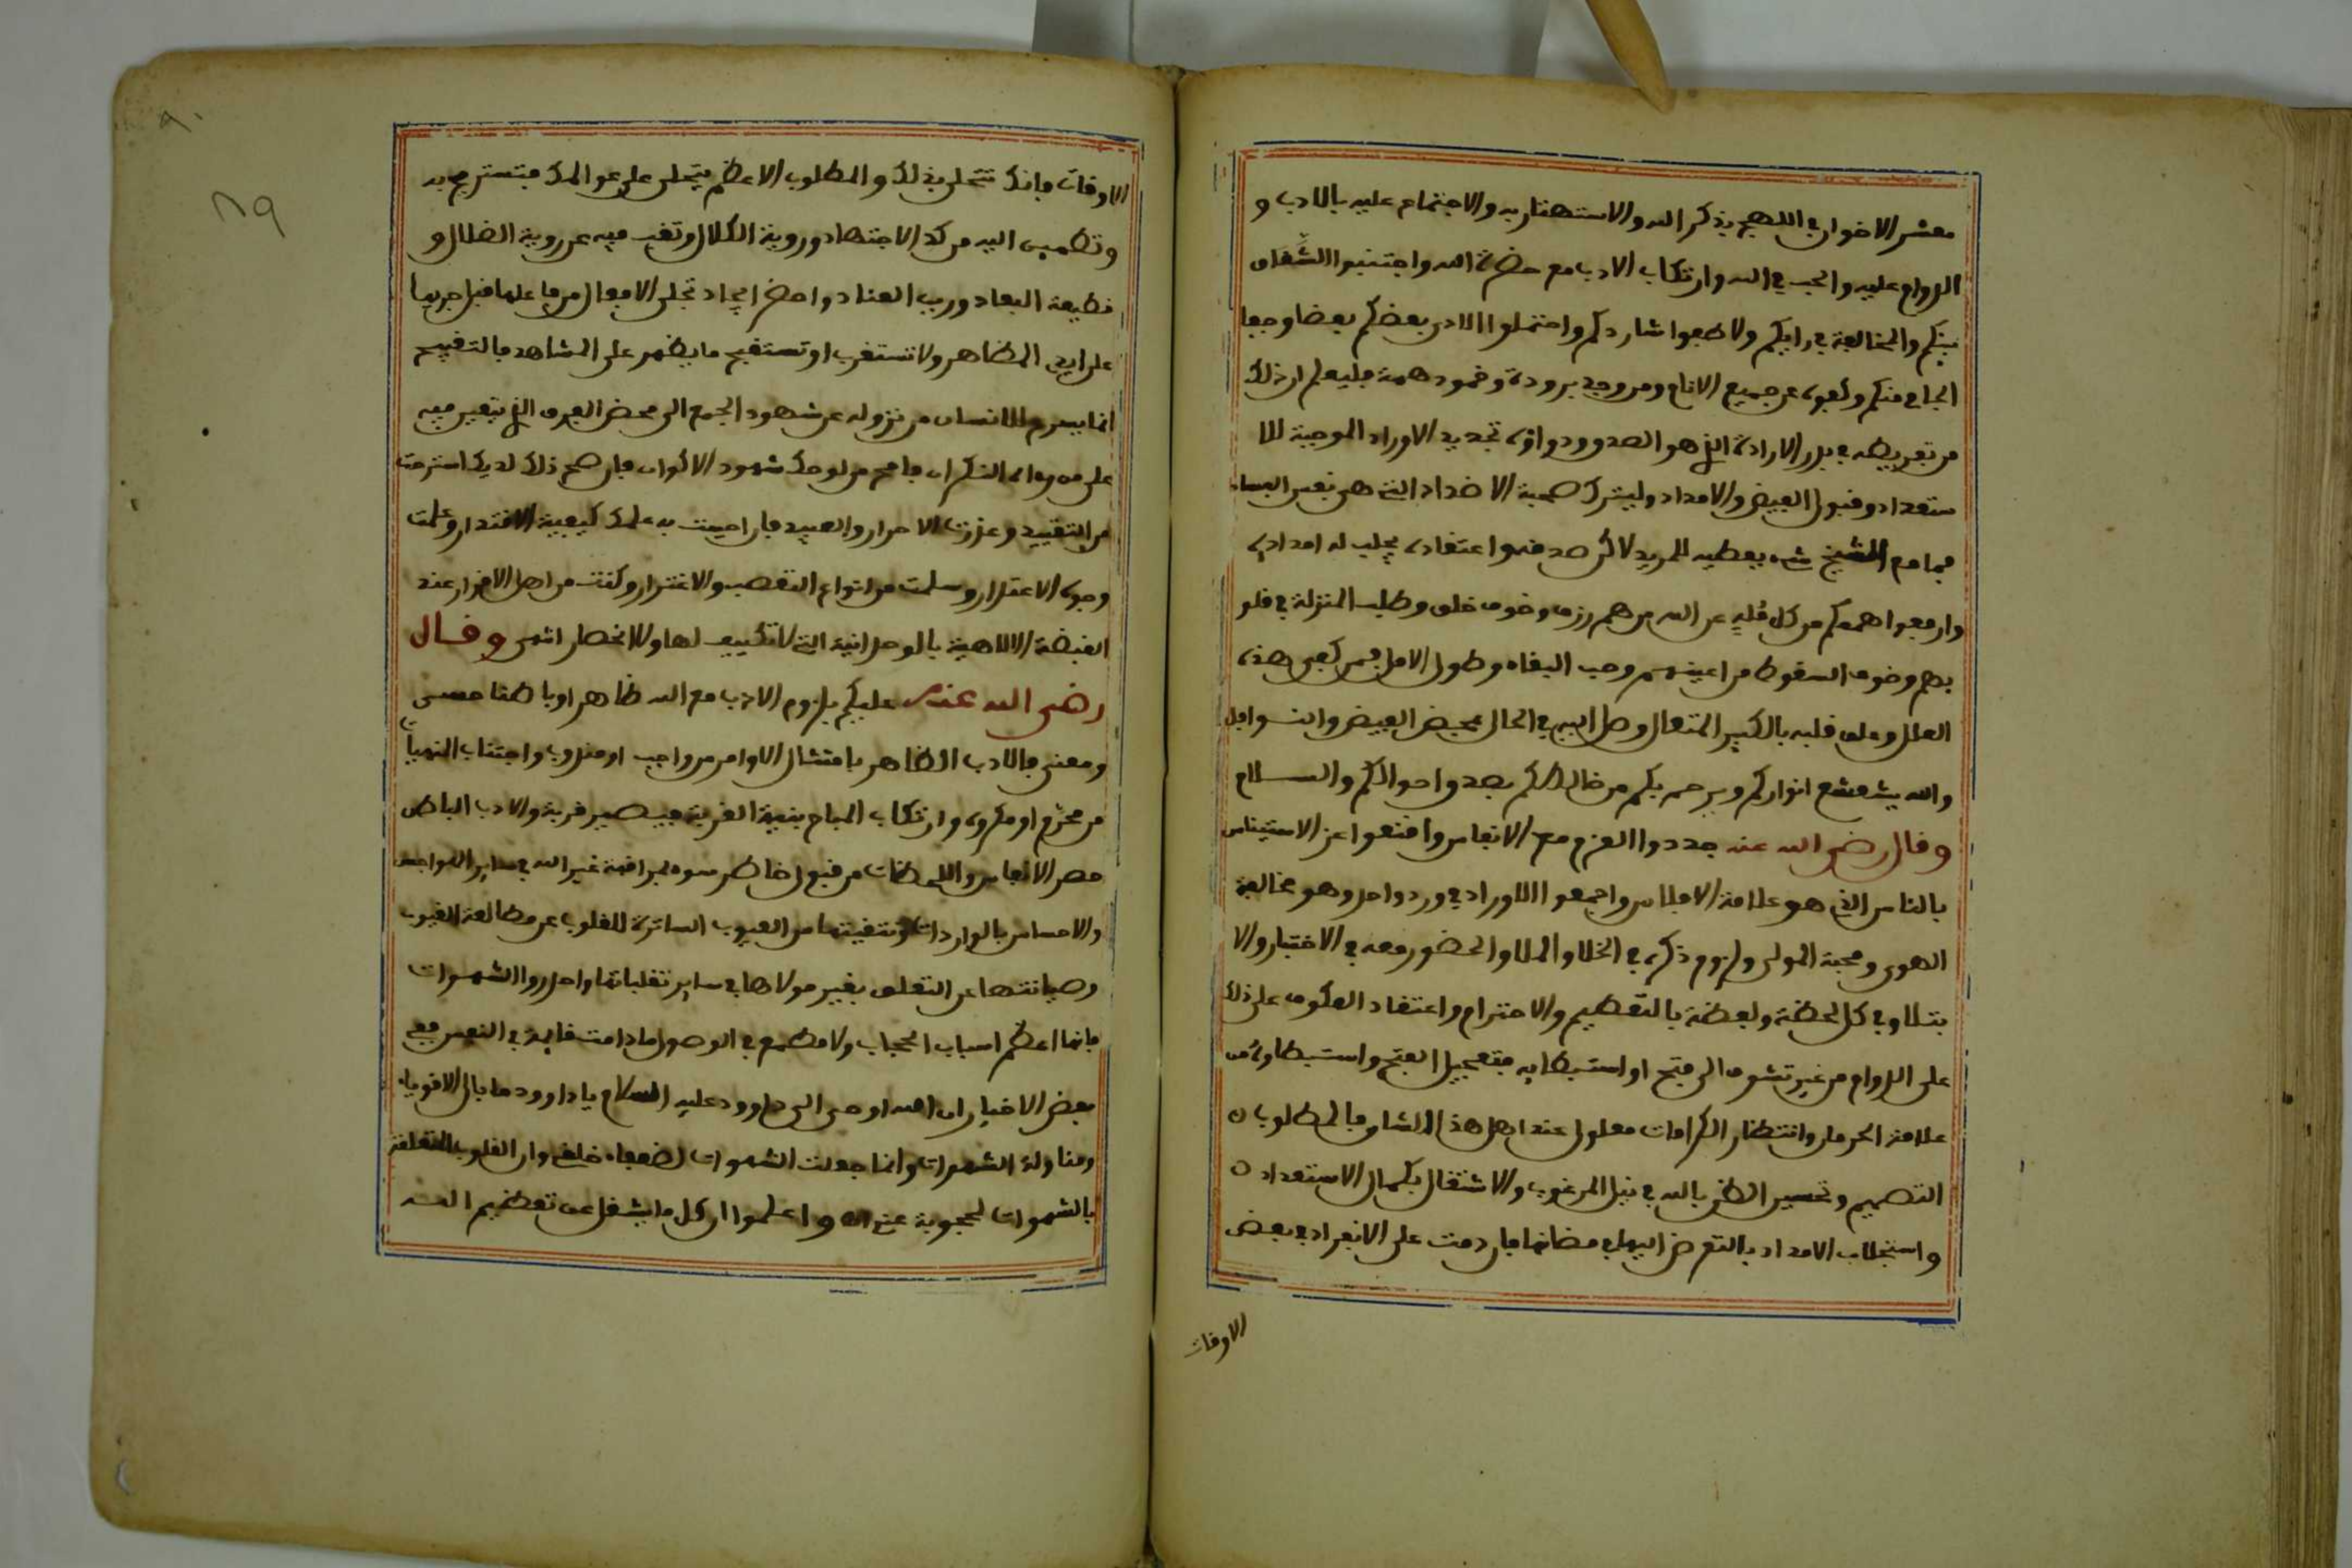 معشر الاخوان في اللهج بذكر الله والاستهتار به والاجتماع عليه بالادب و
الدوام عليه والحب في الله وارتكاب الادب مع حضرة الله واجتنبوا الشقاق
بينكم والمخالفة في رايكم ولاطفوا شاردكم واحتملوا الاذى بعضكم بعضا وجفا
الجافي منكم وكفوه عن جميع الانام ومن وجد برودة وخمود همة فليعلم ان ذلك
من تفريطه في بذر الارادة الذي هو الصدق ودواؤه تجديد الاوراد الموجبة للا
ستعداد وقبول الفيض والامداد وليترك صحبة الاضداد التي هي نفس الفساد
فما مع الشيخ شيء يعطيه للمريد لاكن صدقه واعتقاده يجلب له امداده
وارفعوا هممكم من كل مُلهٍ عن الله من هم رزق وخوف خلق وطلب المنزلة في قلو
بهم وخوف السقوط من اعينهم وحب البقاء وطول الامل فمن كفى هذه
العلل وعلق قلبه بالكبير المتعال وصل اليه في الحال بمحض الفيض والنوافل
والله يشعشع انواركم ويرحم بكم من خالطكم بصدق احوالكم والسلام
وقال رضي الله عنه جددوا العزم مع الانفاس واقنعوا عن الاستيناس
بالناس الذي هو علامة الافلاس واجمعوا الاوراد في ورد واحد وهو مخالفة
الهوى ومحبة المولى ولزوم ذكره في الخلا والملا والحضور معه في الاختبار والا
بتلا وفي كل لحظة ولفظة بالتعظيم والاحترام واعتقاد العكوف على ذلك
على الدوام من غير تشوف الى فتح او استبطايه فتعجيل الفتح واستبطاوه من
علامة الحرمان وانتظار الكرامات معلول عند اهل هذا الشان فالمطلوب
التصميم وتحسين الظن بالله في نيل المرغوب والاشتغال بكمال الاستعداد
واستجلاب الامداد بالتعرض اليها في مضانها فان دمت على الانفراد في بعض
الاوقات
الاوقات فانك تتحلى بذلك والمطلوب الاعظم يتجلى على عوالمك فتستريح به
وتطمين اليه من كد الاجتهاد ورؤية الكلال وتغيب فيه عن روية الضلال و
قطيعة البعاد وريب العناد واحضر ايجاد تجلى الافعال من فاعلها قبل جريها
على ايدي المظاهر ولا تستغرب او تستقبح ما يظهر على المشاهد فالتقبيح
انما يسرى للانسان من نزوله عن شهود الجمع الى محض الفرق الذي يتعين فيه
على من راى النكران فامح من لوحك شهود الاكوان فان صح ذلك لديك استرحت
من التقييد وعذرت الاحرار والعبيد فان احييت به علمك كيفية الاقتدار وعلمت
وجوه الاعتذار وسلمت من انواع التعصب والاغترار وكنت من اهل الاقرار عند
القبضة الالاهية بالوحدانية التي لا تكييف لها ولا انحصار انتهى وقال
رضي الله عنه عليكم بلزوم الادب مع الله ظاهرا وباطنا حسى
ومعنى فالادب الظاهر بامتثال الاوامر من واجب او مندوب واجتناب النهيات
من محرم او مكروه وارتكاب المباح بنية القربة فيصير قربة والادب الباطن
حصر الانفاس واللحظات من قبول خاطر سوء لمراقبة غير الله في ساير المواجهـ
والاحساس بالواردات وتنقيتها من العيوب الساترة للقلوب عن مطالعة الغيوب
وصيانتها عن التعلق بغير مولاها في ساير تقلباتها واحذروا الشهوات
فانها اعظم اسباب الحجاب ولا مطمع في الوصول ما دامت قايمة في النفس ففي
بعض الاخبار ان الله اوحى الى داوود عليه السلام يا داوود ما بال الاقوياء
ومناولة الشهوات وانما جعلت الشهوات لضعفاء خلقي وان القلوب المتعلقة
بالشهوات محجوبة عني اه واعلموا ان كل ما يشغل عن تعظيم الله